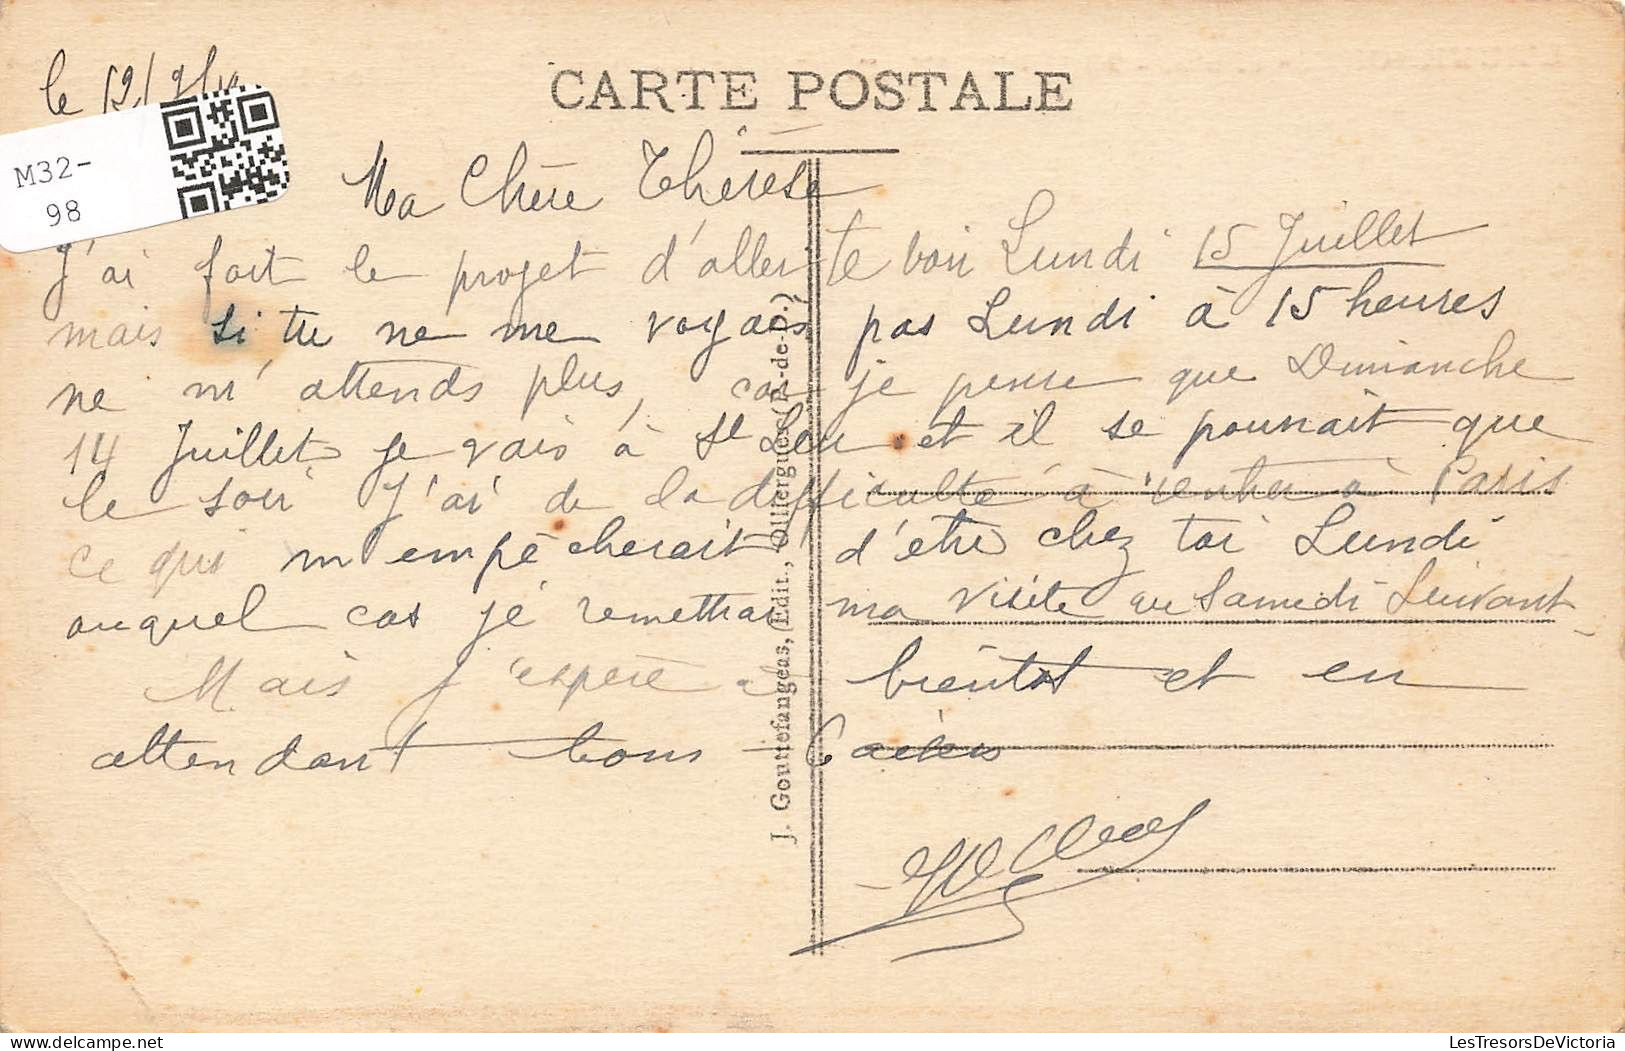 le 12/
CARTE POSTALE
M32-
98
Ma Chère Therese
J'ai fait le projet d'aller te voir Lundi 15 Juillet
mais si tu ne me voyais pas Lundi à 15 heures
ne m'attends plus, car je pense que Dimanche
14 Juillet je vais à St Leu et il se pourrait que
le soir j'ai de la difficulté à rentrer à Paris
ce qui m'empêcherait d'etre chez toi Lundi
auquel cas je remettrai ma visite au Samedi Suivant
Mais j'espère à bientot et en
attendant bons baisers
J. Gouttefangeas, Edit., Olliergues (P.-de-D.)
LesTresorsDeVictoria
delcampe.net